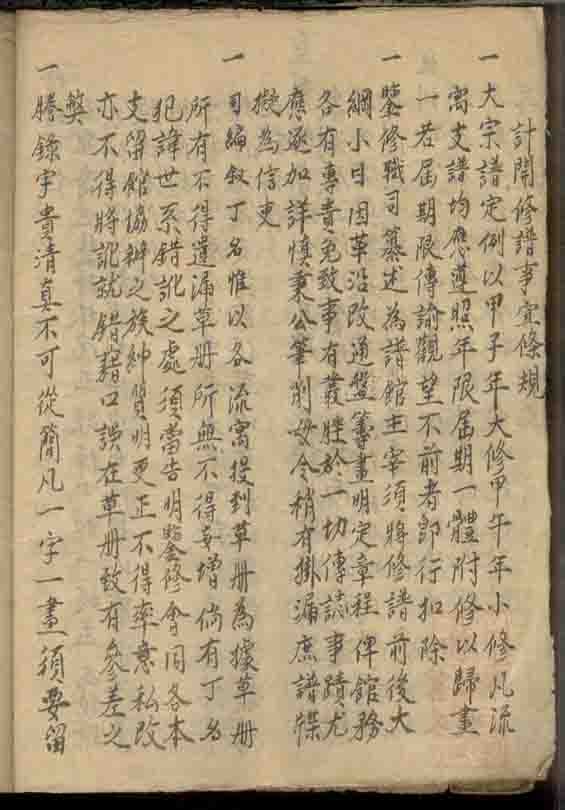 計開修譜事宜條規
一大宗譜定例以甲子年大修甲午年小修凡流
寓支譜均應遵照年限屆期一體附修以歸畫
一若屆期限傳諭觀望不前者即行扣除
一鑒修職司纂述為譜館主宰須將修譜前後大
綱小目因革沿改通盤籌畫明定章程俾館務
各有專責免致事有叢脞於一切傳誌事蹟尤
應逐加詳慎秉公筆削毋令稍有掛漏庶譜牒
擬為信吏
一司編叙丁名惟以各流寓投到草册為據草册
所有不得遺漏草册所無不得妄增倘有丁名
犯諱世系錯訛之處須當告明鑒修會同各本
支留館協辦之族紳質明更正不得率意私改
亦不得將訛就錯藉口誤在草册致有參差之
弊
一謄錄字貴清真不可從簡凡一字一畫須要留